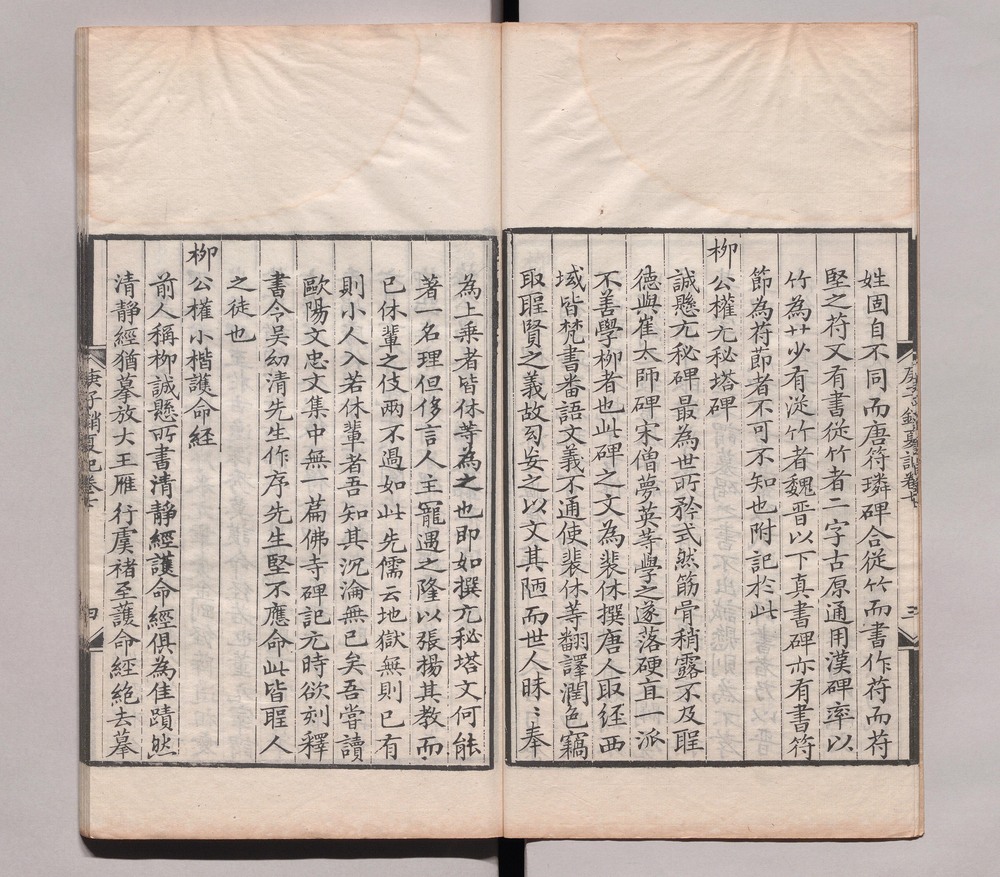 姓固自不同而唐符璘碑合從竹而書作苻而苻
堅之苻又有書從竹者二字古原通用漢碑率以
竹為艹少有從竹者魏晋以下真書碑亦有書符
節為苻節者不可不知也附記於此
柳公權玄秘塔碑
誠懸玄秘碑最為世所矜式然筋骨稍露不及聖
德與崔太師碑宋僧夢英等學之遂落硬直一派
不善學柳者也此碑之文為裴休撰唐人取經西
域皆梵書番語文義不通使裴休等翻譯潤色竊
取聖賢之義故勾妄之以文其陋而世人昧〻奉
庚子銷夏記卷七
三
為上乗者皆休等為之也即如撰玄秘塔文何能
著一名理但侈言人主寵遇之隆以張楊其教而
已休輩之伎兩不過如此先儒云地獄無則已有
則小人入若休輩者吾知其沉淪無已矣吾嘗讀
歐陽文忠文集中無一萹佛寺碑記元時欲刻釋
書今吴幼清先生作序先生堅不應命此皆聖人
之徒也
柳公權小楷護命經
前人稱柳誠懸所書清静經護命經俱為佳蹟然
清静經猶摹放大王雁行虞褚至護命經絶去摹
庚子銷夏記卷七
四